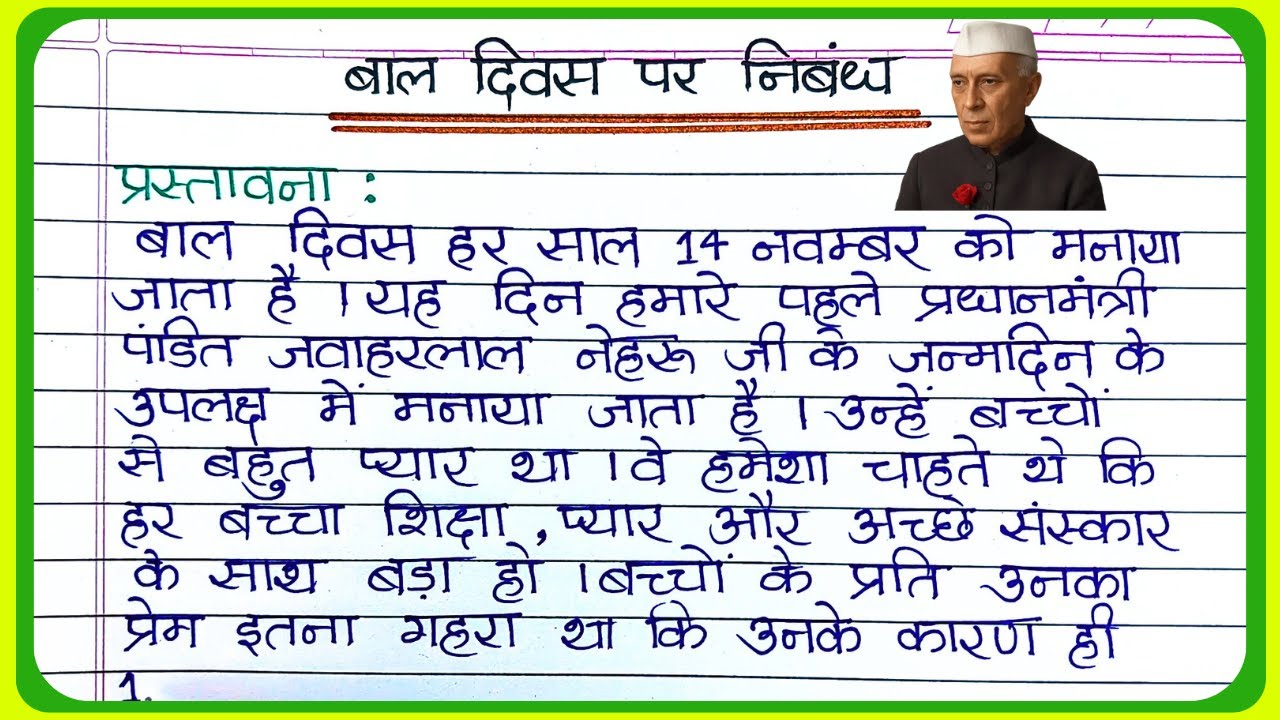 बाल दिवस पर निबंध
प्रस्तावना :
बाल दिवस हर साल 14 नवम्बर को मनाया
जाता है । यह दिन हमारे पहले प्रधानमंत्री
पंडित जवाहरलाल नेहरू जी के जन्मदिन के
उपलक्ष में मनाया जाता है । उन्हें बच्चों
से बहुत प्यार था । वे हमेशा चाहते थे कि
हर बच्चा शिक्षा , प्यार और अच्छे संस्कार
के साथ बड़ा हो । बच्चों के प्रति उनका
प्रेम इतना गहरा था कि उनके कारण ही
1.